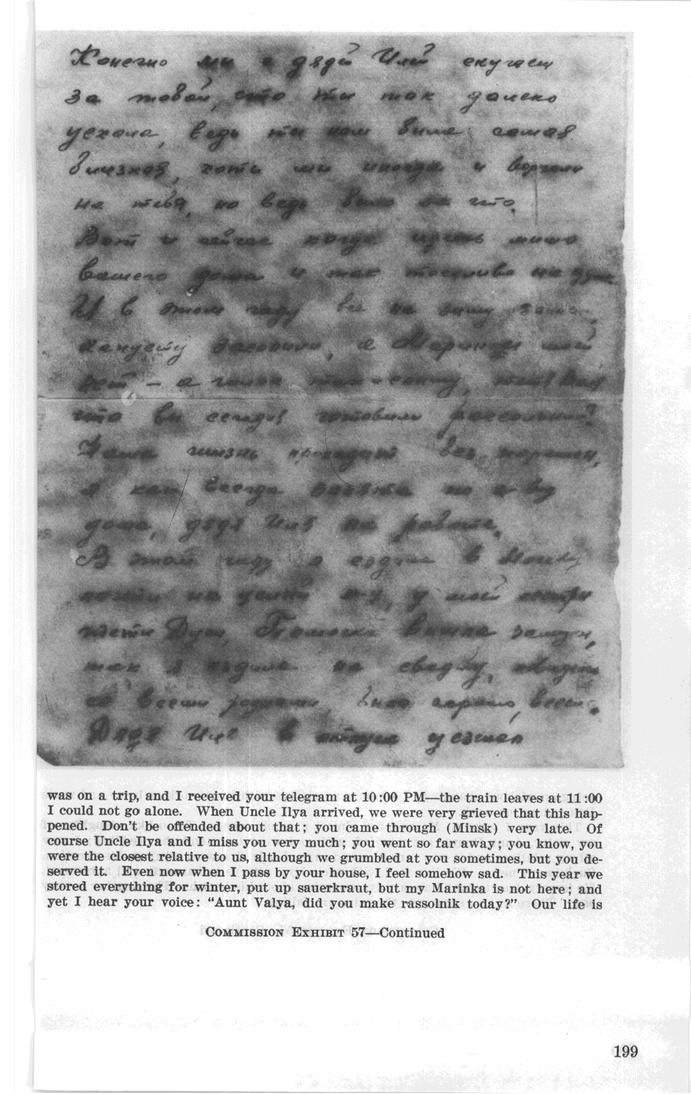 Конечно мы с дядей Илей скучаем
за тобой, что ты так далеко
уехала, ведь ты нам была самая
близкая, хоть мы иногда и ворчали
на тебя, но ведь было за что.
Вот и сейчас когда идешь мимо
вашего дома и так тоскливо на
И в этом году все на зиму
капусту засолили, а Маринки моей
нет - а голос
что вы сегодня готовили рассольник?
Наша жизнь проходит без перемен,
я как всегда занята по х-ву
дома, дядя Иля на работе.
В этом году я ездила в
у моей сестры
тети Дуси, вышла замуж,
так я ездила на свадьбу,
со всеми родными, было хорошо, весело.
Дядя Иля в отпуск уезжал
was on a trip, and I received your telegram at 10:00 PM—the train leaves at 11:00
I could not go alone. When Uncle Ilya arrived, we were very grieved that this hap-
pened. Don't be offended about that; you came through (Minsk) very late. Of
course Uncle Ilya and I miss you very much; you went so far away; you know, you
were the closest relative to us, although we grumbled at you sometimes, but you de-
served it. Even now when I pass by your house, I feel somehow sad. This year we
stored everything for winter, put up sauerkraut, but my Marinka is not here; and
yet I hear your voice: "Aunt Valya, did you make rassolnik today?" Our life is
COMMISSION EXHIBIT 57—Continued
199